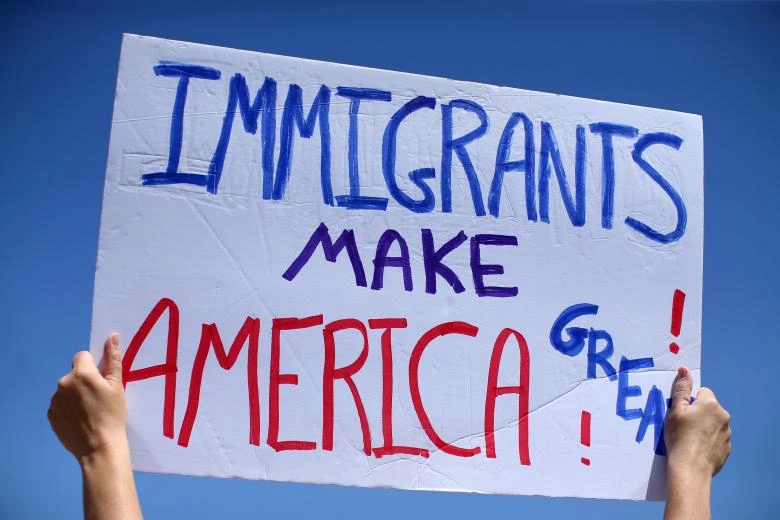 IMMIGRANTS
MAKE
AMERICA GREA ! !